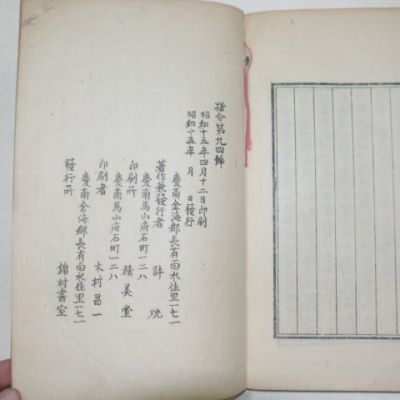 指令第九四號
昭和十五年四月十二日印刷
昭和十五年 月 日發行
慶南金海郡長有面水佳里一七一
著作兼發行者 許
慶南馬山府石町一二八
印刷所 積美堂
慶南馬山府石町一二八
印刷者 木村昌一
慶南金海郡長有面水佳里一七一
發行所 館村書室